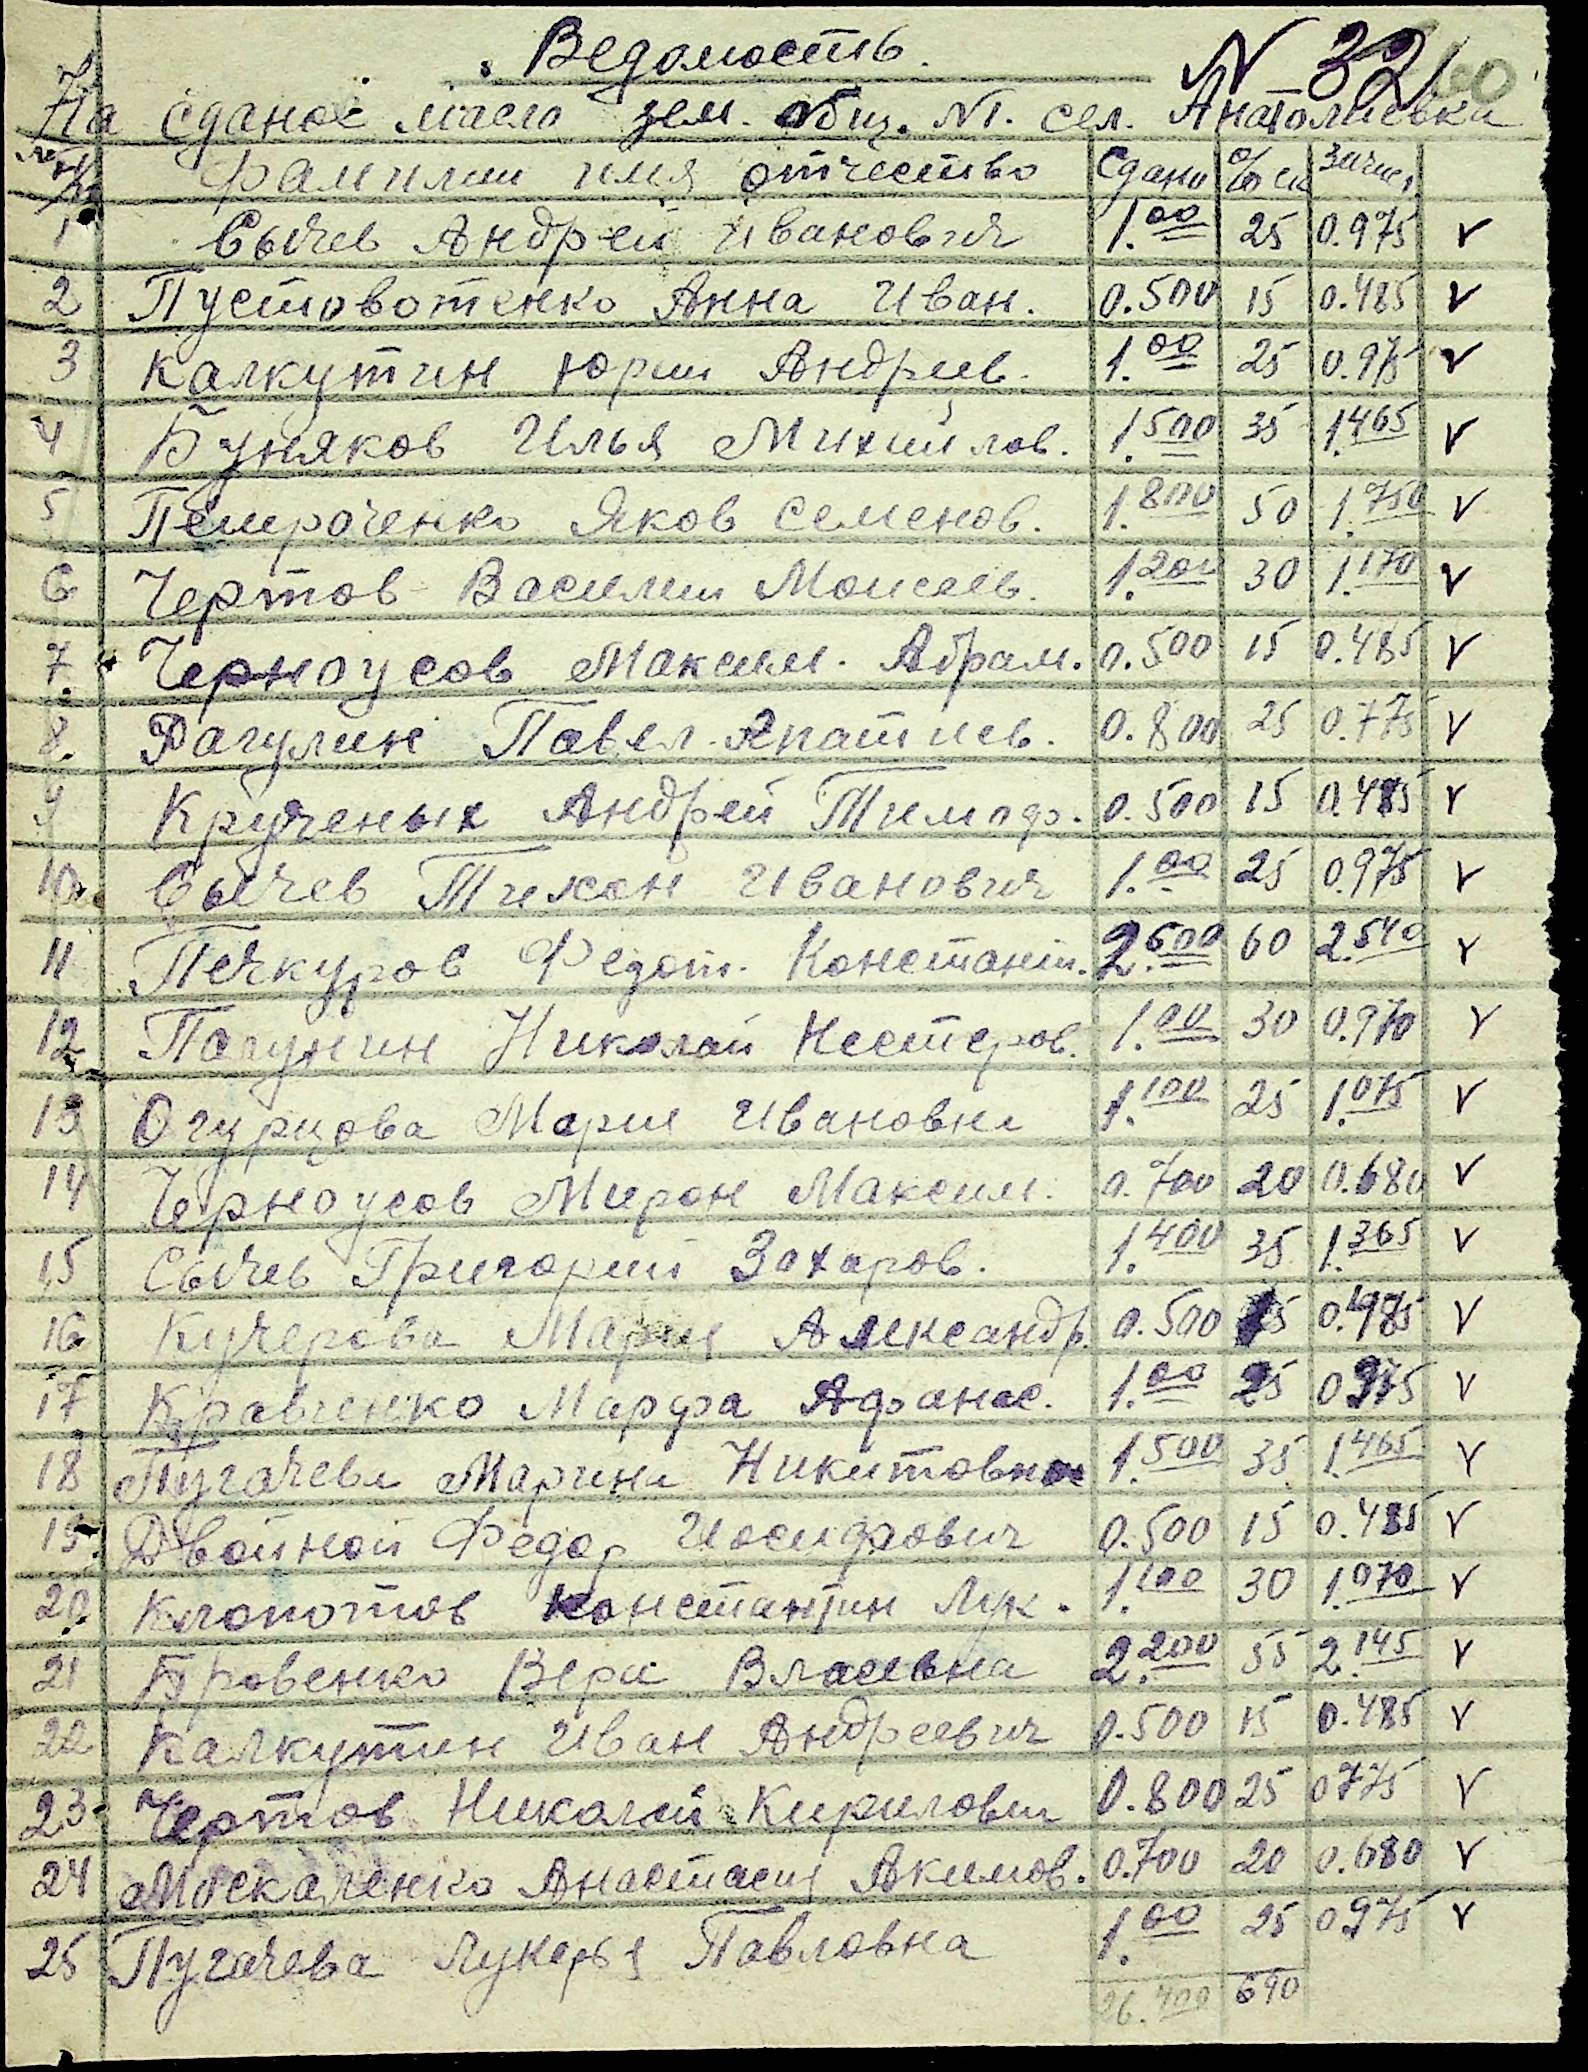 Ведомость. N 32
На сданое масло зем. общ. N1. сел. Анатолиевка
Фамилии имя отчество Сдано % ск Зачис,
1 Сычев Андрей Иванович 1.00 25 0.975 v
2 Пустовотенко Анна Иван. 0.500 15 0.485 v
3 Калкутин Юрии Андриев. 1.00 25 0.975 v
4 Буняков Илья Михайлов. 1.500 35 1.465 v
5 Петроченко Яков Семенов. 1.800 50 1.750 v
6 Чертов Василии Моисеев. 1.200 30 1.170 v
7. Черноусов Максим. Абрам. 0.500 15 0.485 v
8. Рагулин Павел. Ипатиев. 0.800 25 0.775 v
9 Крученых Андрей Тимоф. 0.500 15 0.485 v
10. Сычев Тихон Иванович 1.00 25 0.975 v
11 Печкуров Федот. Констант. 2.600 60 2.540 v
12 Пагунин Николай Нестеров. 1.00 30 0.970 v
13 Огурцова Мария Ивановна 1.100 25 1.075 v
14 Черноусов Мирон Максим. 0.700 20 0.680 v
15 Сычев Григории Захаров. 1.400 35 1.365 v
16 Кучерова Мария Александр. 0.500 15 0.485 v
17 Кравченко Марфа Афанас. 1.00 25 0975 v
18 Пугачева Марина Никитовна 1.500 35 1.465 v
19. Двойной Федор Иосифович 0.500 15 0.485 v
20. Клопотов Константин Лук. 1.100 30 1.070 v
21 Бровенко Вера Власевна 2.200 55 2.145 v
22 Калкутин Иван Андреевич 0.500 15 0.485 v
23 Чертов Николай Кирилович 0.800 25 0775 v
24 Москаленко Анастасия Акимов. 0.700 20 0.680 v
25 Пугачева Лукерья Павловна 1.00 25 0975 v
26.400 690